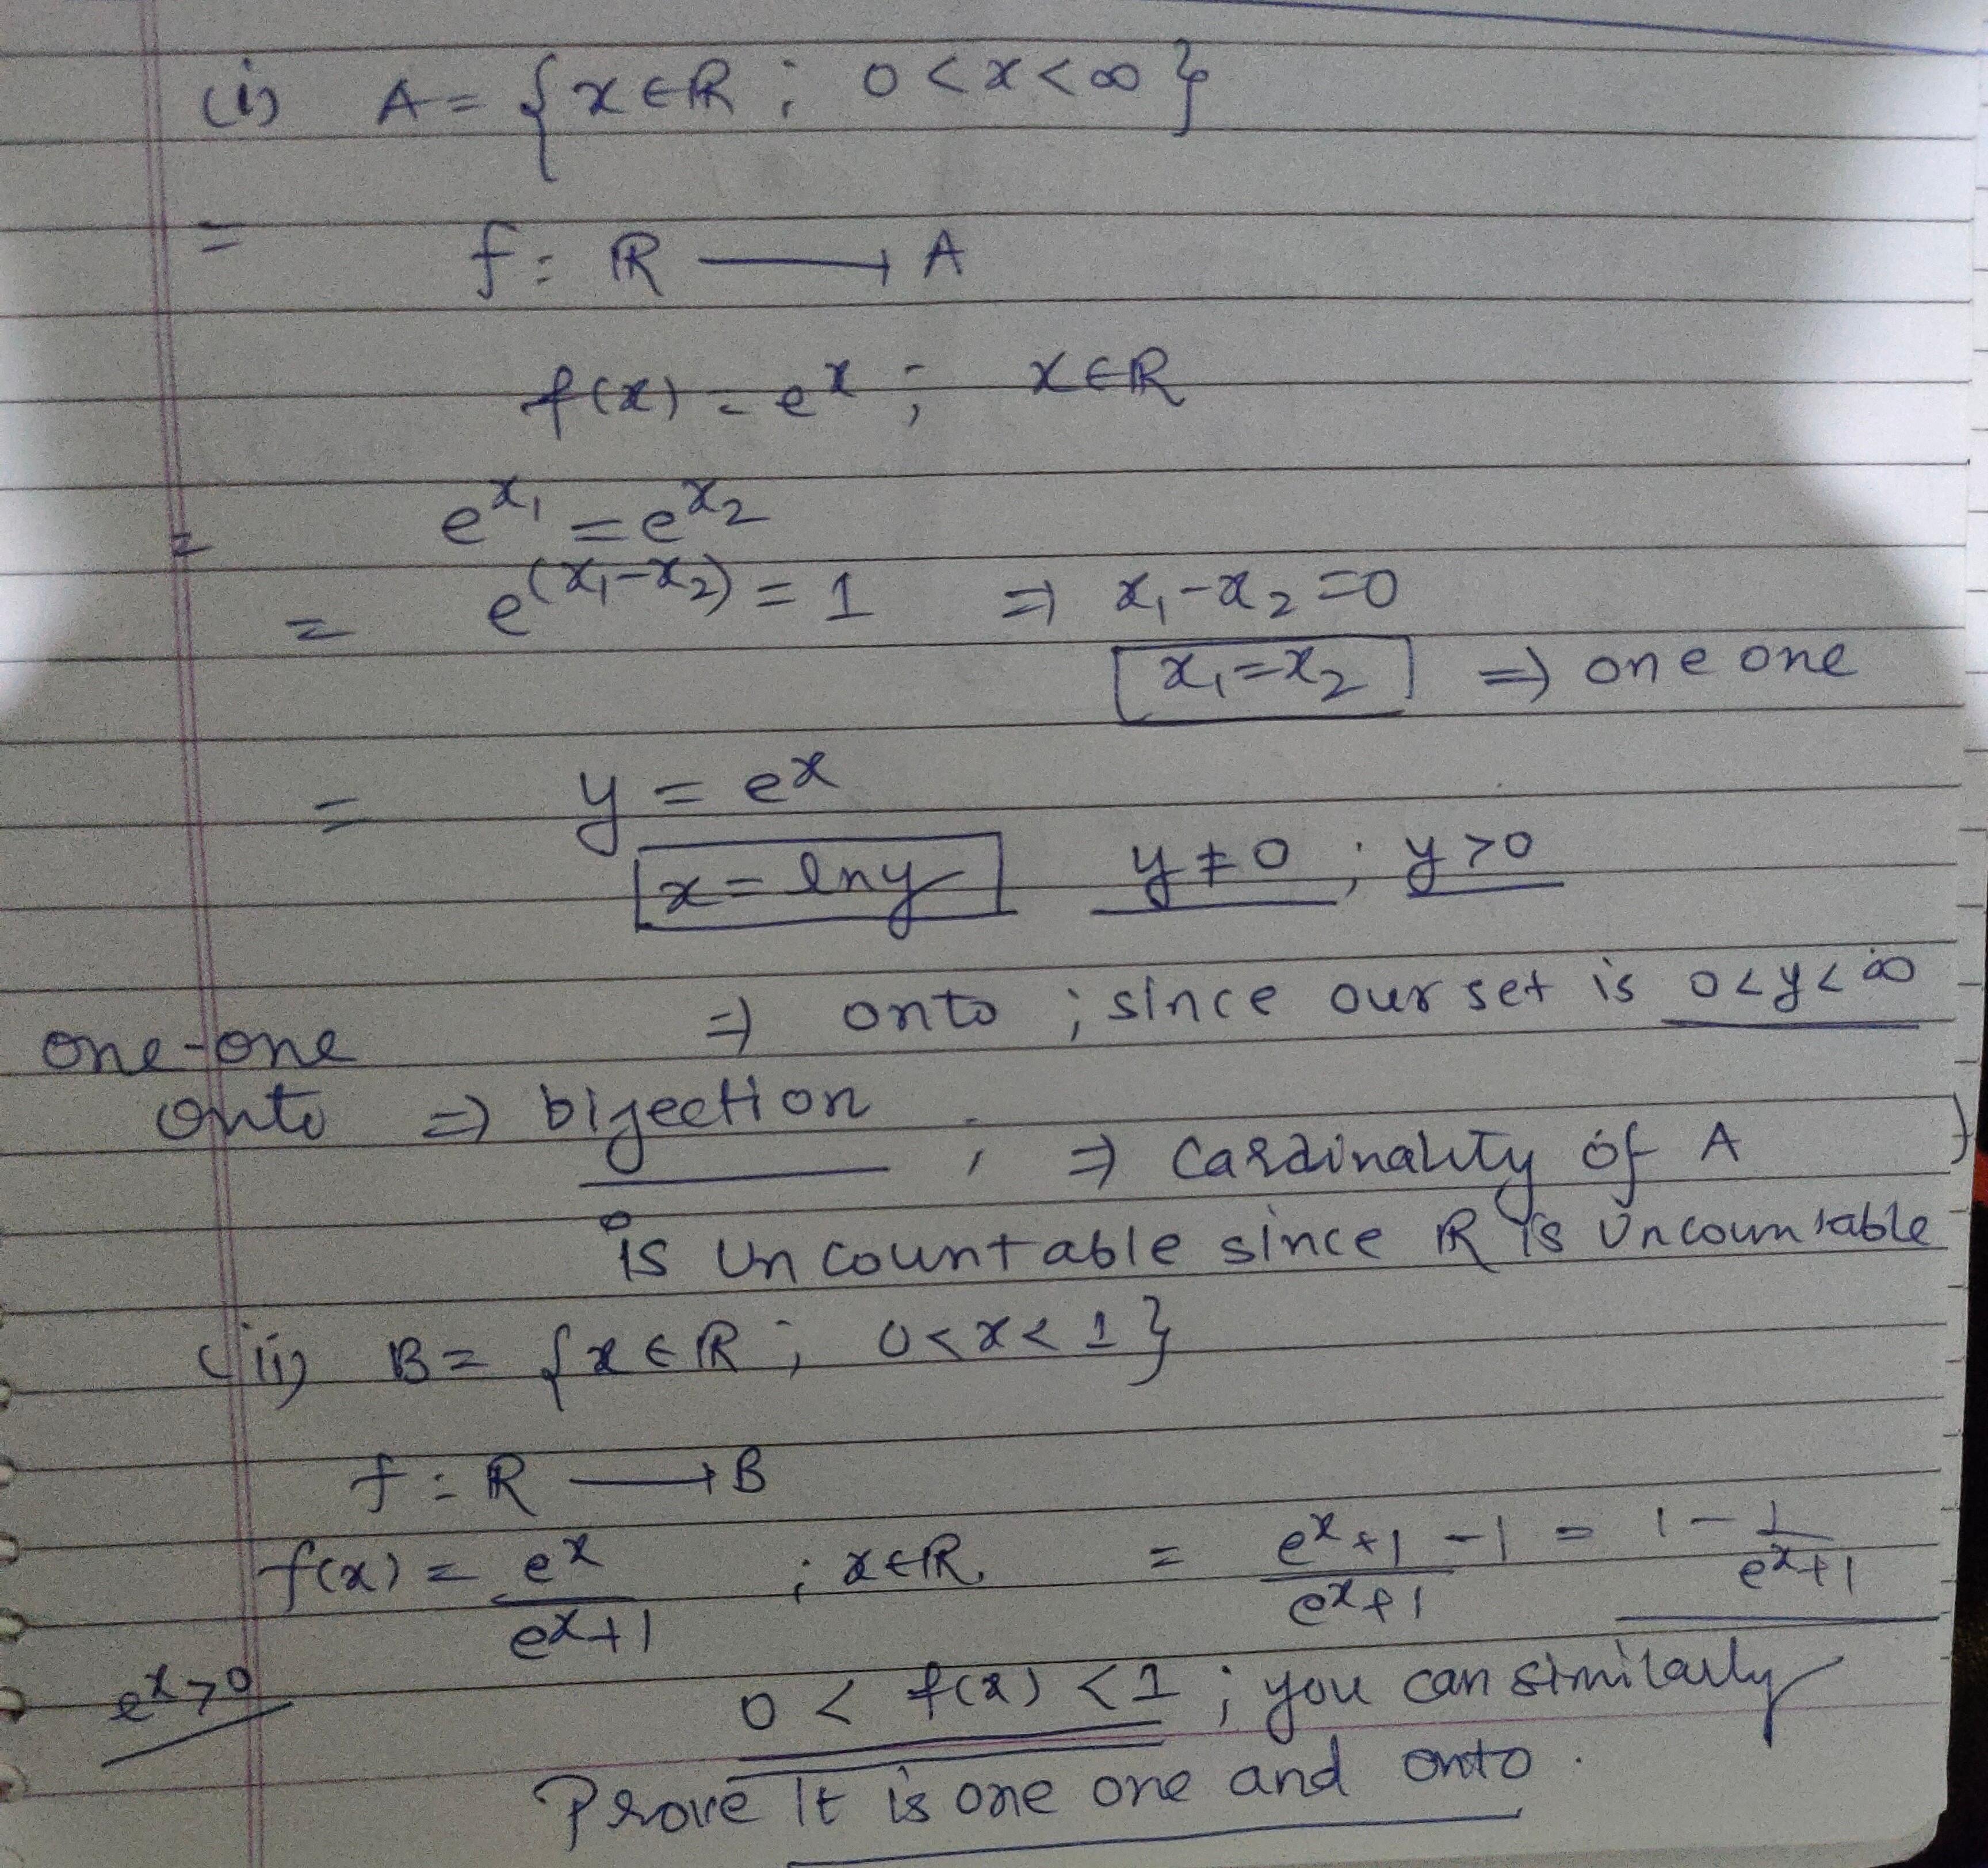 (i) A = {x∈ℝ ; 0<x<∞}
= f : ℝ → A
f(x) = e^x ; x∈ℝ
= e^x₁ = e^x₂
= e^(x₁-x₂) = 1 ⇒ x₁-x₂=0
x₁=x₂ ⇒ one one
= y = e^x
x = lny y≠0 ; y>0
⇒ onto ; since our set is 0<y<∞
one-one
onto ⇒ bijection ; ⇒ Cardinality of A
is uncountable since ℝ is Uncountable
(ii) B = {x∈ℝ ; 0<x<1}
f : ℝ → B
f(x) = e^x/(e^x+1) ; x∈ℝ. = (e^x+1-1)/(e^x+1) = 1 - 1/(e^x+1)
e^x>0 0 < f(x) < 1 ; you can similarly
Prove It is one one and onto.